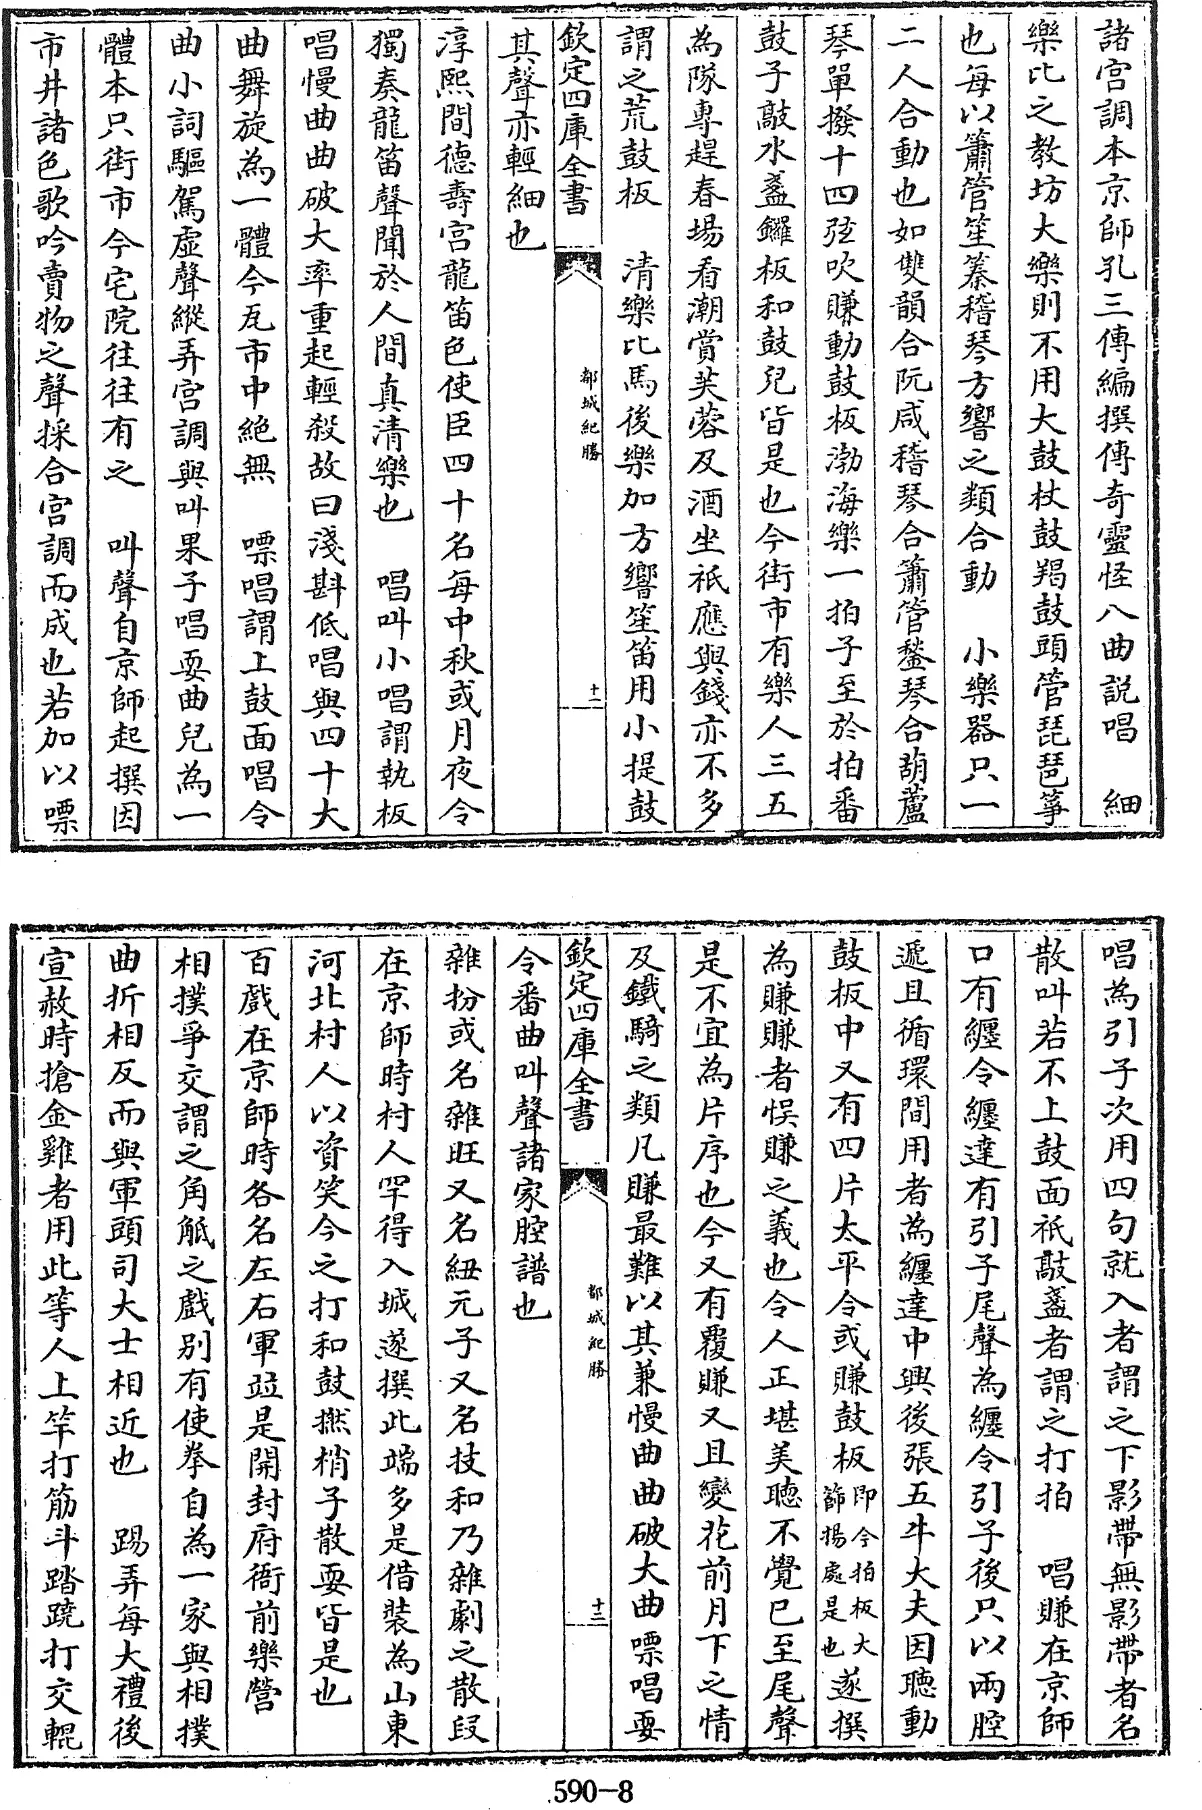 諸宮調本京師孔三傳編撰傳奇靈怪八曲説唱　細
樂比之教坊大樂則不用大鼓杖鼓羯鼓頭管琵琶筝
也每以簫管笙䉒稽琴方響之類合動　小樂器只一
二人合動也如雙韻合阮咸稽琴合簫管鍫琴合葫蘆
琴單撥十四弦吹賺動鼓板渤海樂一拍子至於拍番
鼓子敲水盞鑼板和鼓兒皆是也今街市有樂人三五
為隊專趕春場看潮賞芙蓉及酒坐祇應與錢亦不多
謂之荒鼓板　清樂比馬後樂加方響笙笛用小提鼓
欽定四庫全書　都城紀勝　十一
其聲亦輕細也
淳熙間德壽宮龍笛色使臣四十名每中秋或月夜令
獨奏龍笛聲聞於人間真清樂也　唱叫小唱謂執板
唱慢曲曲破大率重起輕殺故曰淺斟低唱與四十大
曲舞旋為一體今瓦市中絶無　嘌唱謂上鼓面唱令
曲小詞驅駕虚聲縱弄宮調與叫果子唱耍曲兒為一
體本只街市今宅院往往有之　叫聲自京師起撰因
市井諸色歌吟賣物之聲採合宮調而成也若加以嘌
唱為引子次用四句就入者謂之下影帶無影帶者名
散叫若不上鼓面祇敲盞者謂之打拍　唱賺在京師
口有纒令纒達有引子尾聲為纒令引子後只以兩腔
遞且循環間用者為纒達中興後張五牛大夫因聽動
鼓板中又有四片太平令或賺鼓板即今拍板大篩揚處是也遂撰
為賺賺者悞賺之義也令人正堪美聽不覺已至尾聲
是不宜為片序也今又有覆賺又且變花前月下之情
及鐵騎之類凡賺最難以其兼慢曲曲破大曲嘌唱耍
欽定四庫全書　都城紀勝　十二
令番曲叫聲諸家腔譜也
雜扮或名雜旺又名紐元子又名技和乃雜劇之散段
在京師時村人罕得入城遂撰此端多是借裝為山東
河北村人以資笑今之打和鼓撚梢子散耍皆是也
百戲在京師時各名左右軍竝是開封府衙前樂營
相撲爭交謂之角觝之戲别有使拳自為一家與相撲
曲折相反而與軍頭司大士相近也　踢弄每大禮後
宣赦時搶金雞者用此等人上竿打筋斗踏蹺打交輥
590-8